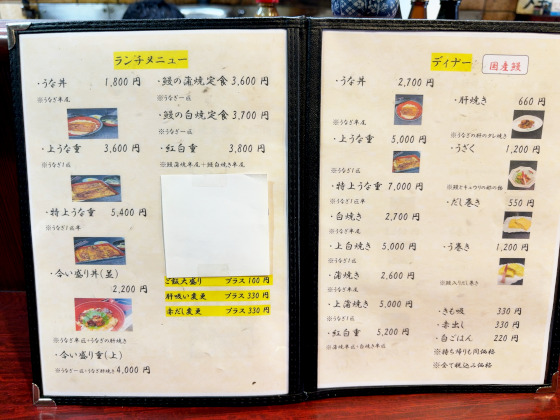 ランチメニュー
・うな丼 1,800円
※うなぎ半尾
・上うな重 3,600円
※うなぎ1匹
・特上うな重 5,400円
※うなぎ1匹半
・合い盛り丼(並)
2,200円
※うなぎ半匹・うなぎの肝焼き
・合い盛り重(上)
※うなぎ一匹・うなぎ肝焼き 4,000円
・鰻の蒲焼定食 3,600円
※うなぎ一匹
・鰻の白焼定食 3,700円
※うなぎ一匹
・紅白重 3,800円
※鰻蒲焼半尾+鰻白焼き半尾
ご飯大盛り プラス100円
肝吸い変更 プラス330円
赤だし変更 プラス330円
ディナー 国産鰻
・うな丼 2,700円
※うなぎ半尾
・上うな重 5,000円
※うなぎ1匹
・特上うな重 7,000円
※うなぎ1匹半
・白焼き 2,700円
※うなぎ半尾
・上白焼き 5,000円
※うなぎ1匹
・蒲焼き 2,600円
※うなぎ半尾
・上蒲焼き 5,000円
※うなぎ1匹
・紅白重 5,200円
※蒲焼半匹・白焼き半匹
・肝焼き 660円
※うなぎの肝のタレ焼き
・うざく 1,200円
※鰻とキュウリの酢の物
・だし巻き 550円
・う巻き 1,200円
※鰻入りだし巻き
・きも吸 330円
・赤出し 330円
・白ごはん 220円
※持ち帰りも同価格
※全て税込み価格